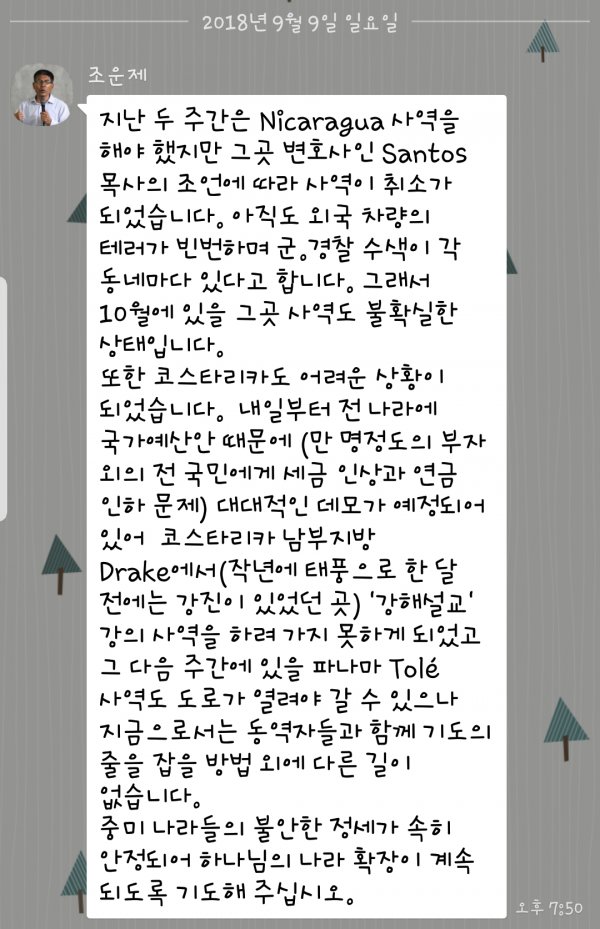 2018년 9월 9일 일요일
조운제
지난 두 주간은 Nicaragua 사역을
해야 했지만 그곳 변호사인 Santos
목사의 조언에 따라 사역이 취소가
되었습니다. 아직도 외국 차량의
테러가 빈번하며 군.경찰 수색이 각
동네마다 있다고 합니다. 그래서
10월에 있을 그곳 사역도 불확실한
상태입니다.
또한 코스타리카도 어려운 상황이
되었습니다. 내일부터 전 나라에
국가예산안 때문에 (만 명정도의 부자
외의 전 국민에게 세금 인상과 연금
인하 문제) 대대적인 데모가 예정되어
있어 코스타리카 남부지방
Drake에서(작년에 태풍으로 한 달
전에는 강진이 있었던 곳) '강해설교'
강의 사역을 하려 가지 못하게 되었고
그 다음 주간에 있을 파나마 Tolé
사역도 도로가 열려야 갈 수 있으나
지금으로서는 동역자들과 함께 기도의
줄을 잡을 방법 외에 다른 길이
없습니다.
중미 나라들의 불안한 정세가 속히
안정되어 하나님의 나라 확장이 계속
되도록 기도해 주십시오.
오후 7:50